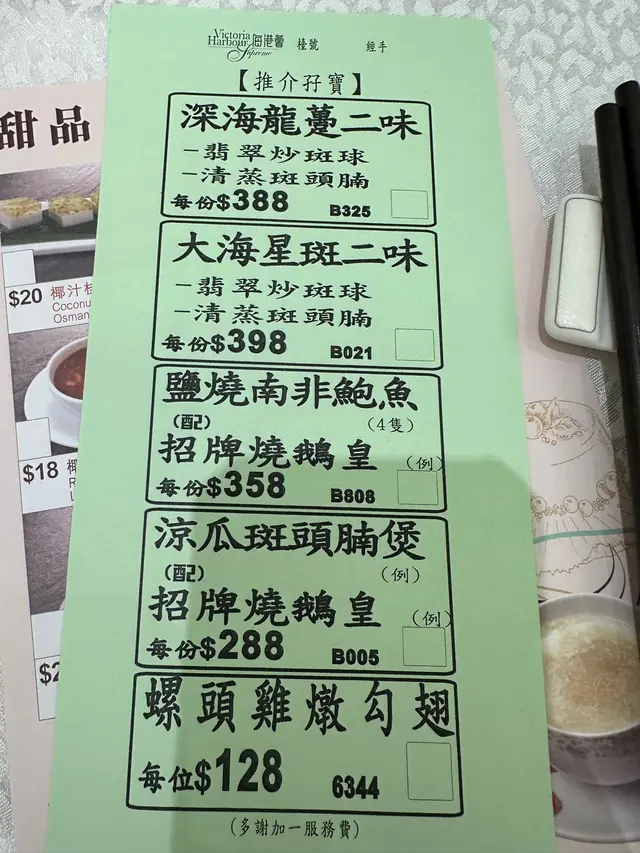 Victoria
Harbour 海港薈 檯號 經手
Supreme
【推介孖寶】
深海龍躉二味
-翡翠炒斑球
-清蒸斑頭腩
每份$388 B325
大海星斑二味
-翡翠炒斑球
-清蒸斑頭腩
每份$398 B021
鹽燒南非鮑魚
(配) (4隻)
招牌燒鵝皇 (例)
每份$358 B808
涼瓜斑頭腩煲
(配) (例)
招牌燒鵝皇 (例)
每份$288 B005
螺頭雞燉勾翅
每位$128 6344
(多謝加一服務費)
甜品
$20 椰汁
Coconu
Osman
$18
$2